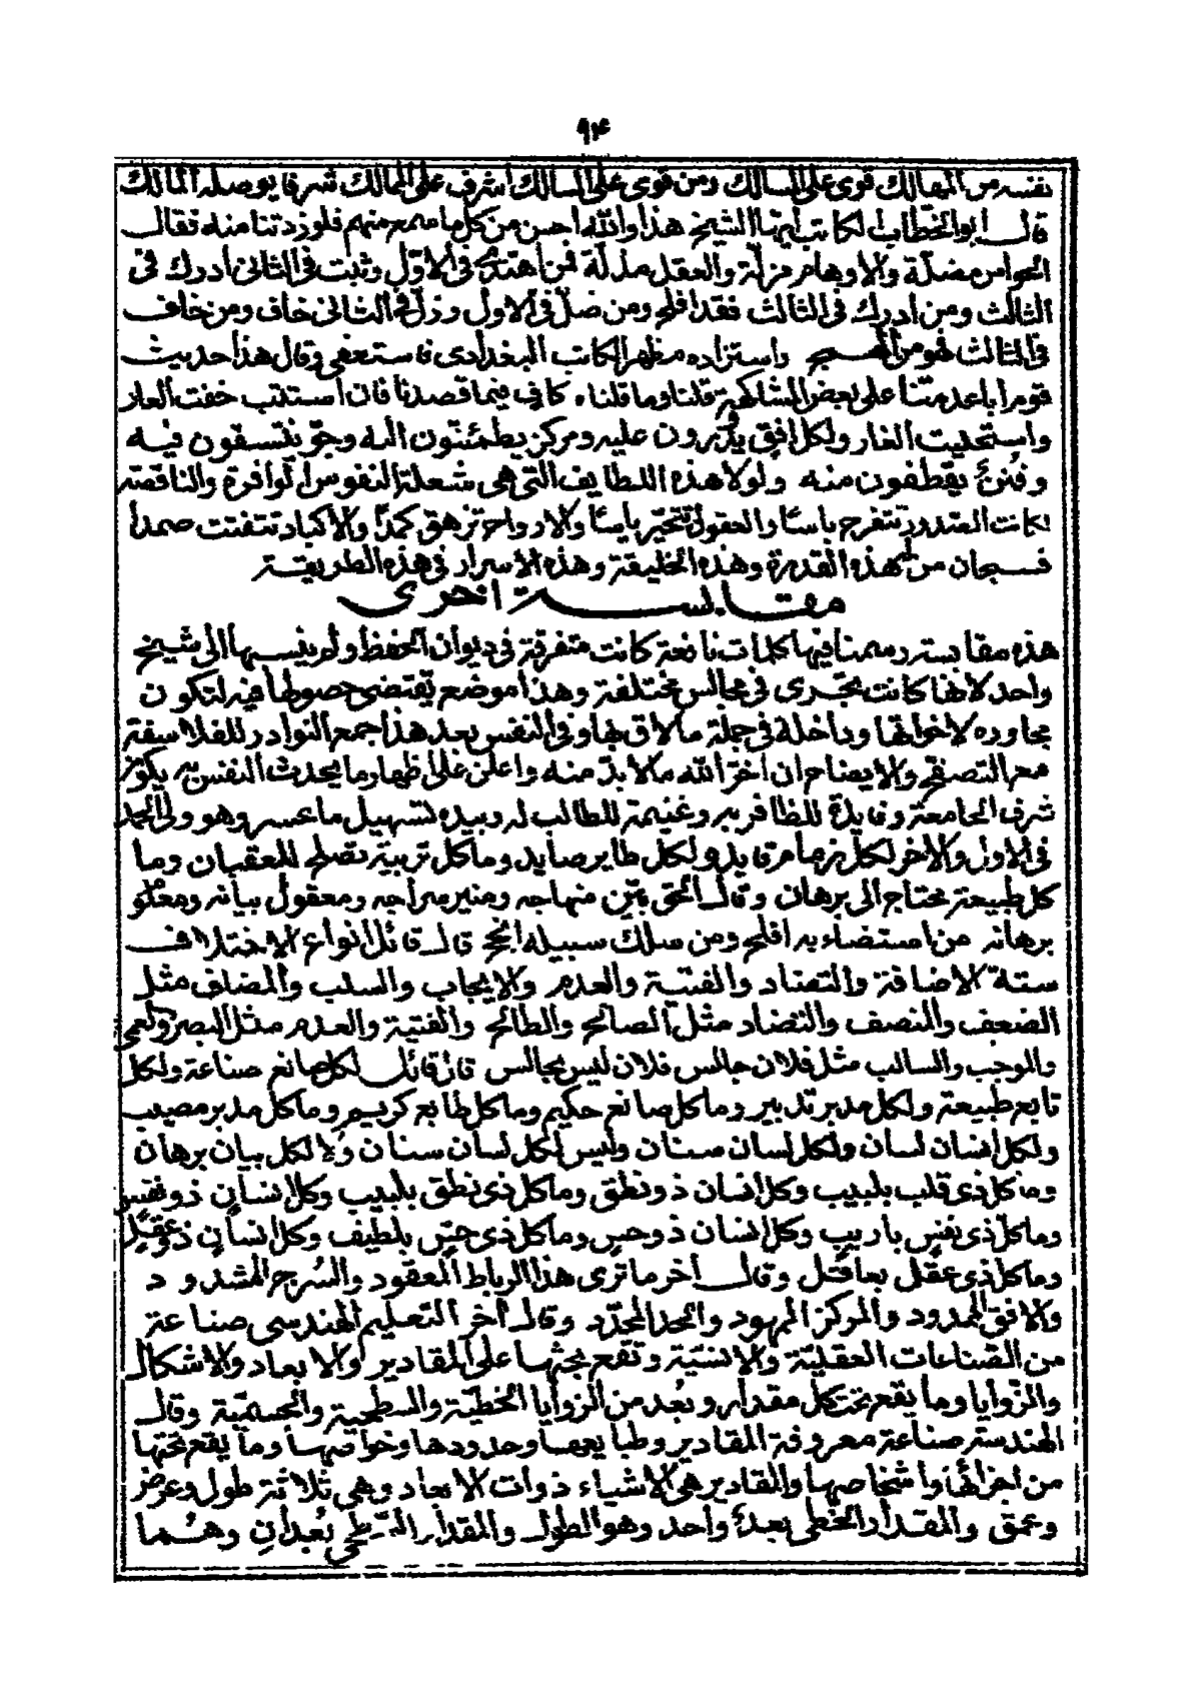 ٩٤
نفسه من المهالك قوى على المسالك ومن قوى على المسالك اشرف على الممالك شرفا يوصله المالك
قال ابو الخطاب الكاتب ايها الشيخ هذا والله احسن من كل ما سمع منهم فلو زدتنا منه فقال
الحواس مضلة والاوهام مزلة والعقل مدلة فمن اهتدى فى الاول وثبت فى الثانى أدرك فى
الثالث ومن أدرك فى الثالث فقد افلح ومن ضل فى الاول وزل فى الثانى خاف ومن خاف
فى الثالث فهو من واستزاده مظهر الكاتب البغدادى فاستعفى وقال هذا حديث
قوم اباعد متنا على بعض المشاكهة قلنا وما قلناه كاف فيما قصدنا فان استتب خفت العار
واستحليت الغار ولكل افق يدورون عليه ومركز يطمئنون اليه وجو يتنسفون فيه
وفنن يقطفون منه ولولا هذه اللطايف التى هى شعلة النفوس الوافرة والناقصة
لكانت الصدور تتفرج باسا والعقول تتحير يأسا والارواح تزهق كمدا والاكباد تتفتت صمدا
فسبحان من له هذه القدرة وهذه الخليقة وهذه الأسرار فى هذه الطريقة
مقابسة اخرى
هذه مقابسة رسمنا فيها كلمات نافعة كانت متفرقة فى ديوان الحفظ ولم ينسبها الى شيخ
واحد لانها كانت تجرى فى مجالس مختلفة وهذا موضع يقتضى حصولها فيه لتكون
مجاوره لاخواتها وداخلة فى جملة ما لاق بها وفى النفس بعد هذا جمع النوادر للفلاسفة
مع التصفح والايضاح ان اخر الله مالا بد منه واعان على اظهار ما يحدث النفس به يكون
شرف الجامعة وفايدة للظافر به وغنيمة للطالب له وبيده تسهيل ما عسر وهو ولى الحمد
فى الاول والاخر لكل زمام قايد ولكل طاير صايد وما كل تربية تصلح للعقبان وما
كل طبيعة تحتاج الى برهان وقال الحق بين منهاجه ومنير سراجه ومعقول بيانه ومعلو
برهانه من استضاء به افلح ومن سلك سبيله انجح قال قائل انواع الاختلاف
ستة الاضافة والتضاد والقنية والعدم والايجاب والسلب والمضاف مثل
الضعف والنصف والتضاد مثل الصالح والطالح والقنية والعدم مثل البصر والعمى
والموجب والسالب مثل فلان جالس فلان ليس بجالس قال قائل لكل صانع صناعة ولكل
تابع طبيعة ولكل مدبر تدبير وما كل صانع حكيم وما كل طابع كريم وما كل مدبر مصيب
ولكل انسان لسان ولكل لسان سنان وليس لكل لسان سنان ولا لكل بيان برهان
وما كل ذى قلب بلبيب وكل انسان ذو نطق وما كل ذى نطق بلبيب وكل انسان ذو نفس
وما كل ذى نفس باريب وكل انسان ذو حس وما كل ذى حس بلطيف وكل انسان ذو عقل
وما كل ذى عقل بعاقل وقال آخر ما ترى هذا الرباط المعقود والسرج المشدود
والافق الممدود والمركز المهود والحد المحدد وقال آخر التعليم الهندسى صناعة
من الصناعات العقلية والانسية وتقع بحثها على المقادير والابعاد والاشكال
والزوايا وما يقع تحت كل مقدار وبعد من الزوايا الخطية والسطحية والجسمية وقال
الهندسة صناعة معروفة المقادير وطبايعها وحدودها وخواصها وما يقع تحتها
من اجزائها واشخاصها والمقادير هى الاشياء ذوات الابعاد وهى ثلاثة طول وعرض
وعمق والمقدار الخطى بعد واحد وهو الطول والمقدار السطحى بعدان وهما